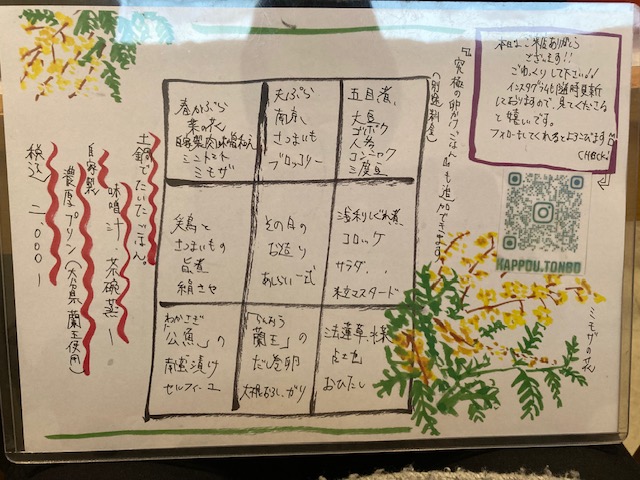 本日はご来店ありがとう
ございます!!
ごゆっくりして下さい
インスタグラムも随時更新
しておりますので、見てくださる
と嬉しいです。
フォローもしてくれるとよろこびます
CHECK!
KAPPOU.TONBO
『究極の卵かけごはん』も追加できます
(別途料金)
五目煮
大豆
ゴボウ
人参
コンニャク
三度豆
天ぷら
南京
さつまいも
ブロッコリー
春かぶら
菜の花
自家製肉味噌和え
ミニトマト
ミモザ
浅利しぐれ煮
コロッケ
サラダ
粒マスタード
その日の
お造り
あしらい一式
鶏と
さつまいもの
旨煮
絹さや
法蓮草
おひたし
「らんおう
蘭王」の
だし巻卵
大根おろし、がり
わかさぎ
「公魚」の
南蛮漬け
セルフィーユ
土鍋でたいたごはん。
味噌汁 茶碗蒸し
自家製
濃厚プリン(大分県 蘭王使用)
税込 二、000-
ミモザの花